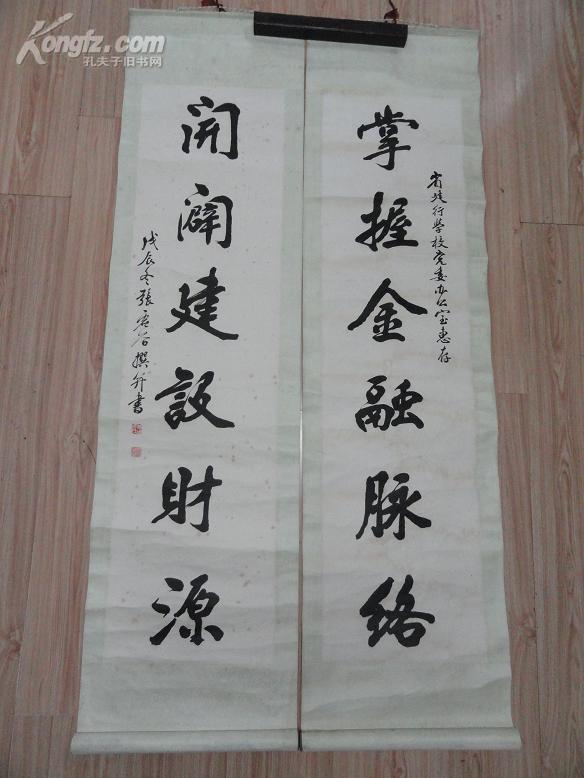 Kongfz.com
孔夫子旧书网
省建行学校党委办公室惠存
掌握金融脉络
開闢建設財源
戊辰冬張君谷撰并書